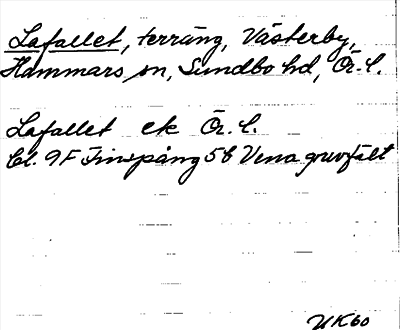 Lafallet, terräng, Västerby,
Hammars sn, Sundbo hd, Ör. l.
Lafallet ek Ör. l.
Bl. 9F Finspång 5b Vena gruvfält
UK60